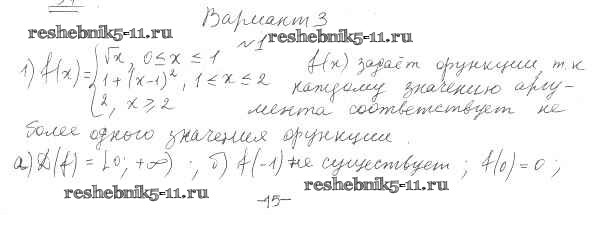 Вариант 3
reshebnik5-11.ru
№1 reshebnik5-11.ru
1) f(x) = { √x, 0 ≤ x ≤ 1
1 + (x-1)², 1 ≤ x ≤ 2
2, x ≥ 2
f(x) задаёт функцию, т.к
каждому значению аргу-
мента соответствует не
более одного значения функции.
а) D(f) = [0; +∞) ; б) f(-1) не существует ; f(0) = 0 ;
reshebnik5-11.ru
reshebnik5-11.ru
-15-